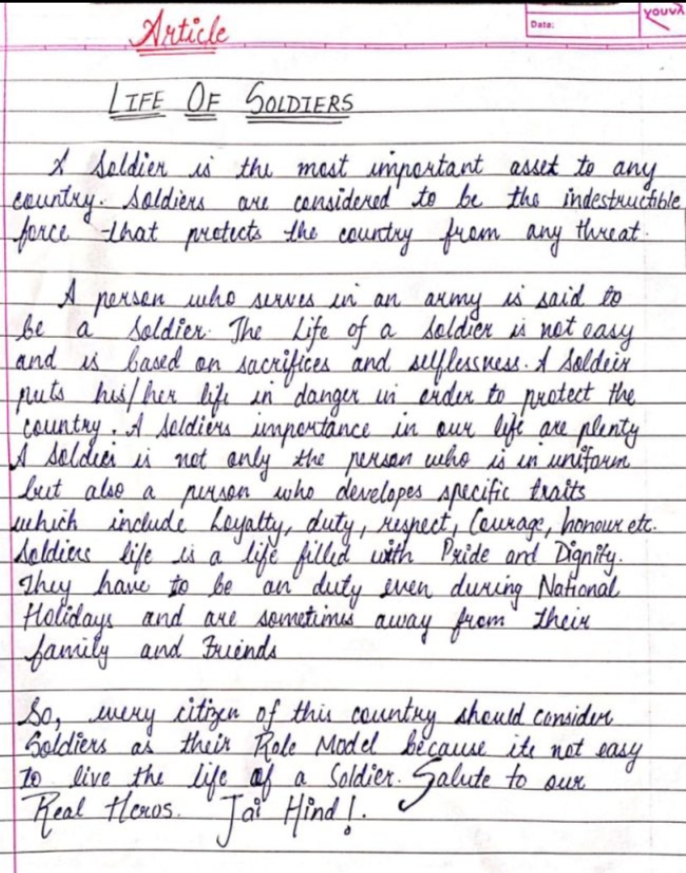 Data:
YOUVA
Article
LIFE OF SOLDIERS
A Soldier is the most important asset to any
country. Soldiers are considered to be the indestructible
force that protects the country from any threat.
A person who serves in an army is said to
be a Soldier. The Life of a Soldier is not easy
and is based on sacrifices and selflessness. A Soldeir
puts his/her life in danger in order to protect the
country. A Soldiers importance in our life are plenty
A Soldier is not only the person who is in uniform
but also a person who developes specific traits
which include Loyalty, duty, respect, Courage, honour etc.
Soldiers life is a life filled with Pride and Dignity.
They have to be on duty even during National
Holidays and are sometimes away from their
family and Friends
So, every citizen of this country should consider
Soldiers as their Role Model because its not easy
to live the life of a Soldier. Salute to our
Real Heros. Jai Hind!.